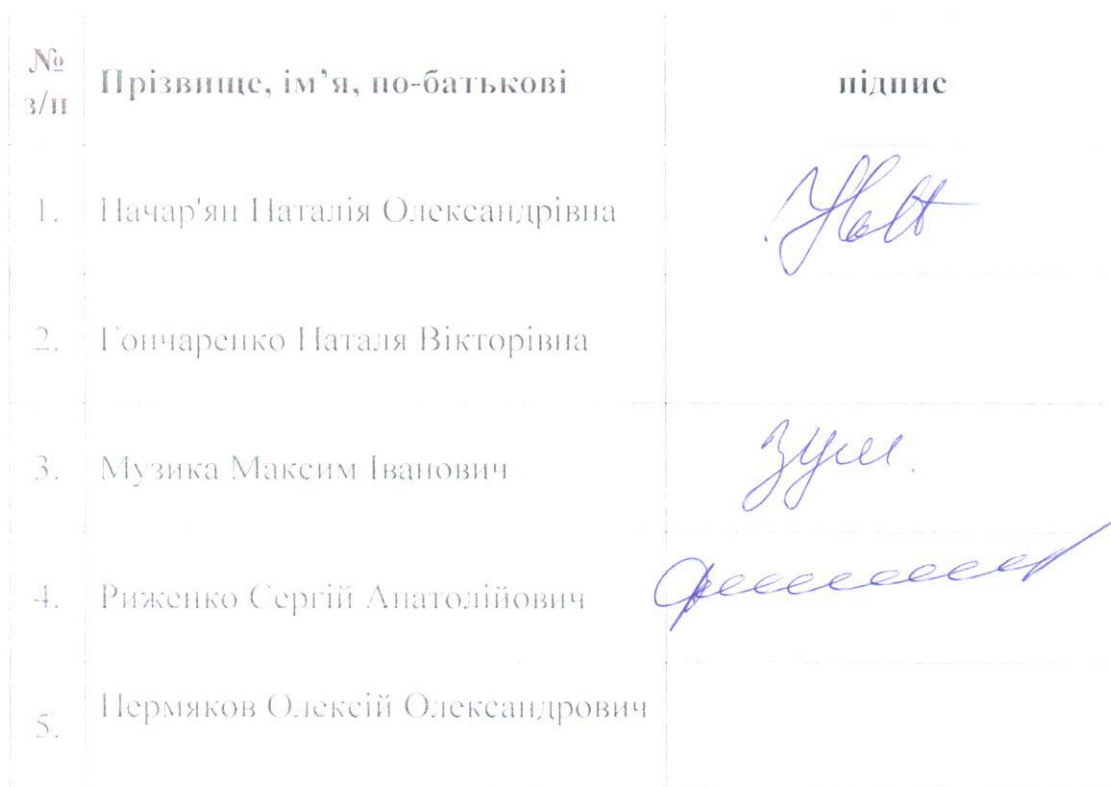 № з/п Прізвище, ім’я, по-батькові підпис
1. Начар'ян Наталія Олександрівна
2. Гончаренко Наталя Вікторівна
3. Музика Максим Іванович зум.
4. Риженко Сергій Анатолійович
5. Пермяков Олексій Олександрович